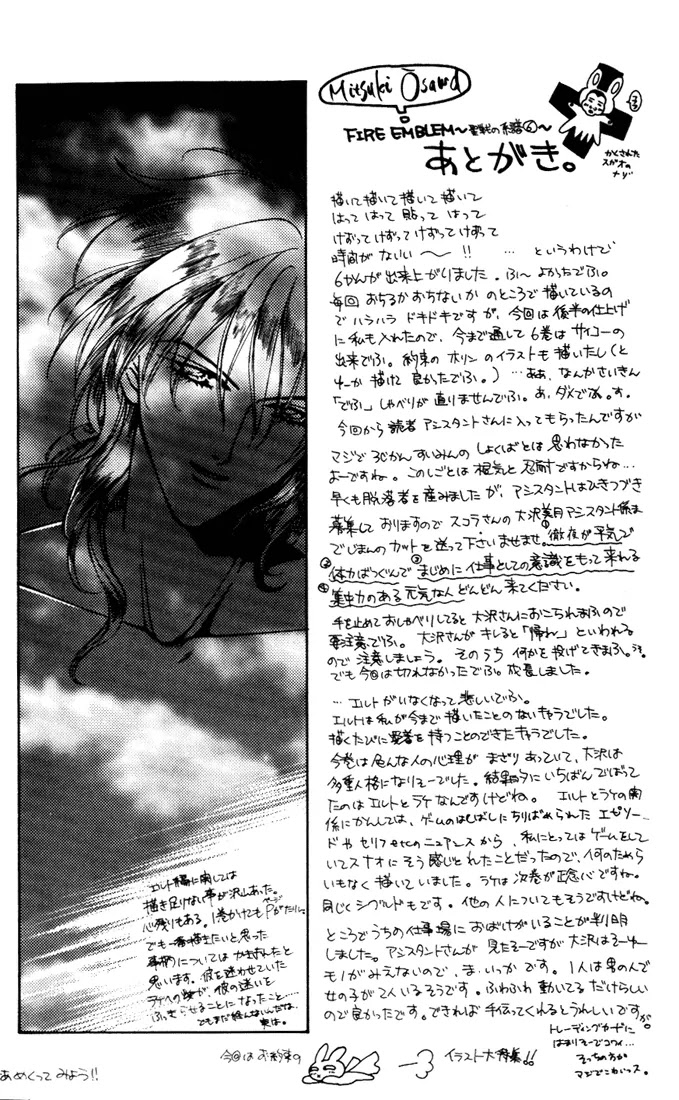 Mitsuki Ōsawa
FIRE EMBLEM～聖戦の系譜⑥～
あとがき。
かくされた
スガオの
ナゾ
描いて描いて描いて描いて
はって はって 貼って はって
けずって けずって けずって けずって
時間がないい 〜〜 !! … というわけで
6かんが出来上がりました。ふ〜 よかったでふ。
毎回 おちるか おちないか のところで 描いているの
で ハラハラ ドキドキ ですが、今回は 後半の仕上げ
に 私も入れたので、今まで通して 6巻は サイコーの
出来でふ。約束の ホリン のイラストも 描いたし(と
ゆーか 描けて 良かったでふ。) …ああ、なんかさいきん
「でふ」しゃべりが 直りませんでふ。あ、ダメでふね。す。
今回から 読者 アシスタントさんに入ってもらったんですが
マジで 3じかんすいみんの しょくばとは 思わなかった
よーですね。このしごとは 根気と 忍耐ですからね…
早くも脱落者を産みましたが、アシスタントはひきつづき
募集しておりますので スコラさんの 大沢美月アシスタント係ま
でじまんの カットを 送って下さいませませ。①徹夜が平気で
②体力ばつぐんで ③まじめに仕事としての意識をもって来れる
④集中力のある 元気な人 どんどん 来てください。
手を止めておしゃべりしてると 大沢さんに おこられまふので
要注意でふ。大沢さんが キレると「帰れ」といわれる
ので 注意しましょう。そのうち 何かを投げてきまふ。うそ。
でも今回は切れなかったでふ。成長しました。
… エルトがいなくなって 悲しいでふ。
エルトは 私が今まで 描いたことのないキャラでした。
描くたびに 愛着を 持つことのできたキャラでした。
今巻は 色んな人の心理が まざりあっていて、大沢は
多重人格になりそーでした。結果的に いちばんでばって
たのは エルトと ラケ なんですけどね。 エルトとラケの関
係にかんしては、ゲームのはしばしにちりばめられた エピソー
ドや セリフetcのニュアンスから、私にとっては ゲームをして
いて スナオに そう感じとれたことだったので、何のためら
いもなく 描いていました。ラケは 次巻が 正念バですね。
同じく シグルドもです。他の人についても そうですけどね。
ところでうちの仕事場に おばけがいることが 判明
しました。アシスタントさんが 見たそーですが 大沢はそーゆー
モノがみえないので、ま、いっか です。1人は男の人で
女の子が 2人いるそうです。ふわふわ 動いてる だけらしい
ので良かったです。できれば 手伝ってくれると うれしい ですが。
トレーディングカードに
はまりそーでコワイ…
そっちの方が
マジでこわいっス。
エルト編に関しては
描き足りない事が沢山あった。
心残りもある。1巻かけても Pがたりない。
でも一番描きたいと思った
事柄については かききれたと
思います。彼を迷わせていた
ラケへの愛が、彼の迷いを
ふっきらせることに なったこと…
でもまだ終んないんだな、
実は。
今回は お約束の
イラスト大特集!!
あ めくって みよう!!